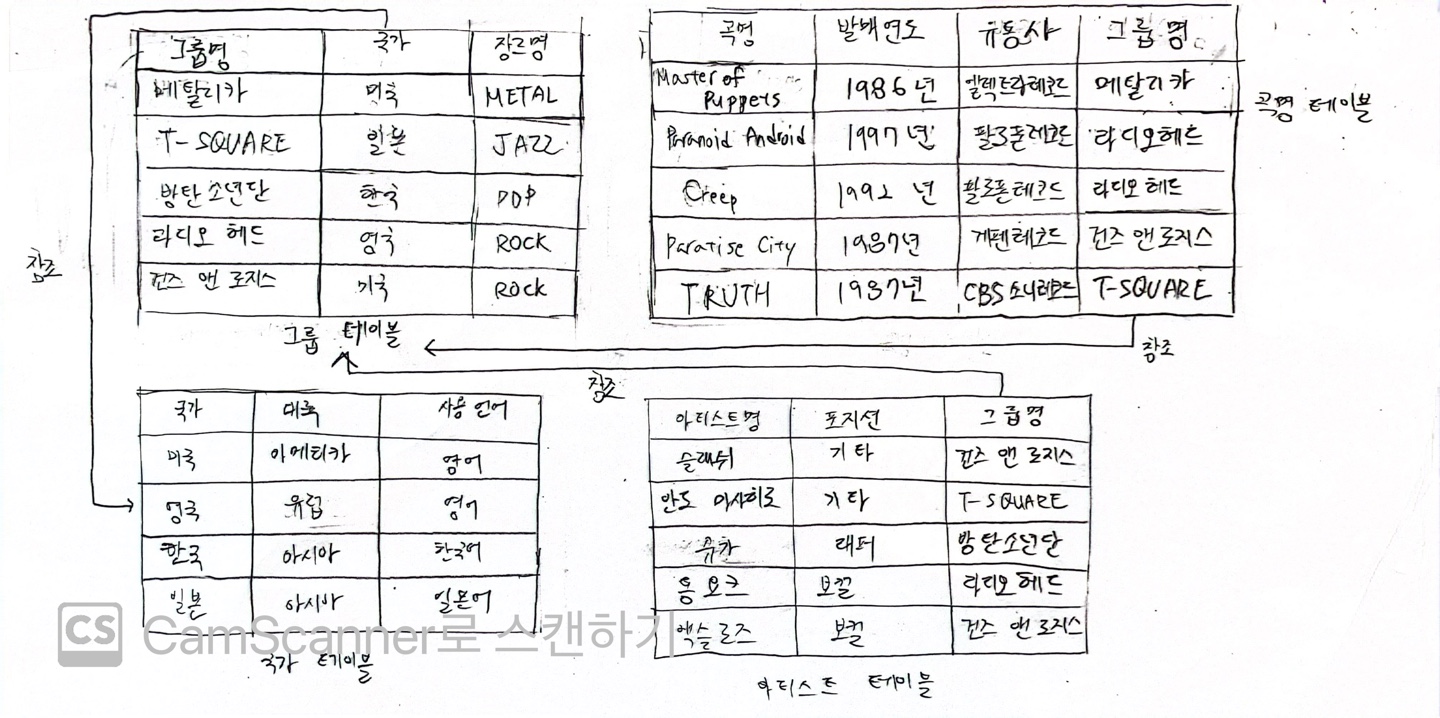 그룹명 국가 장르명
메탈리카 미국 METAL
T-SQUARE 일본 JAZZ
방탄소년단 한국 POP
라디오 헤드 영국 ROCK
건즈 앤 로지스 미국 ROCK
그룹 테이블
곡명 발매연도 유통사 그룹명
Master of Puppets 1986년 엘렉트라레코드 메탈리카
Paranoid Android 1997년 팔로폰레코드 라디오헤드
Creep 1992년 팔로폰레코드 라디오 헤드
Paratise City 1987년 게펜레코드 건즈 앤 로지스
TRUTH 1987년 CBS소니레코드 T-SQUARE
곡명 테이블
참조
참조
참조
국가 대륙 사용 언어
미국 아메리카 영어
영국 유럽 영어
한국 아시아 한국어
일본 아시아 일본어
국가 테이블
아티스트명 포지션 그룹명
슬래쉬 기타 건즈 앤 로지스
안도 마사히로 기타 T-SQUARE
슈가 래퍼 방탄소년단
톰 요크 보컬 라디오 헤드
액슬로즈 보컬 건즈 앤 로지스
아티스트 테이블
CS CamScanner로 스캔하기